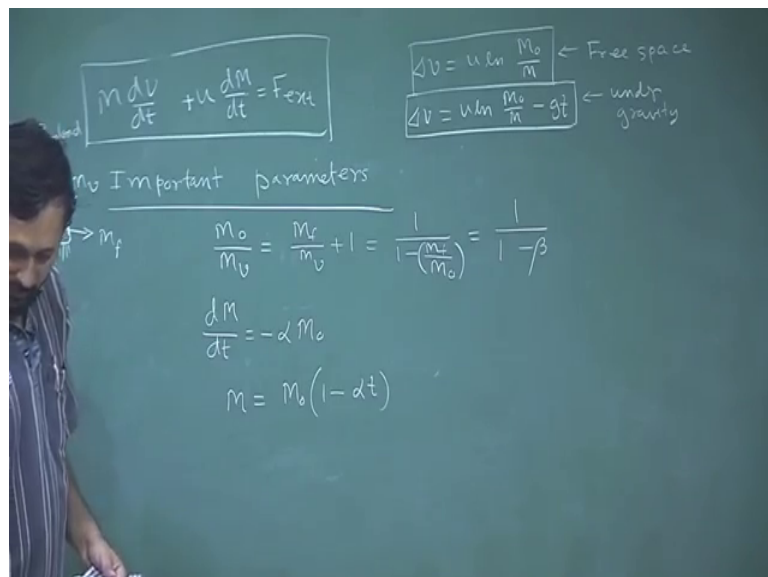 M dv/dt + u dM/dt = F_ext
Δv = u ln M_0/M ← Free space
Δv = u ln M_0/M - gt ← under gravity
m_v Important parameters
→ m_f
M_0/M_v = M_f/M_v + 1 = 1/(1-(M_f/M_0)) = 1/(1-β)
dM/dt = -α M_0
M = M_0(1-αt)